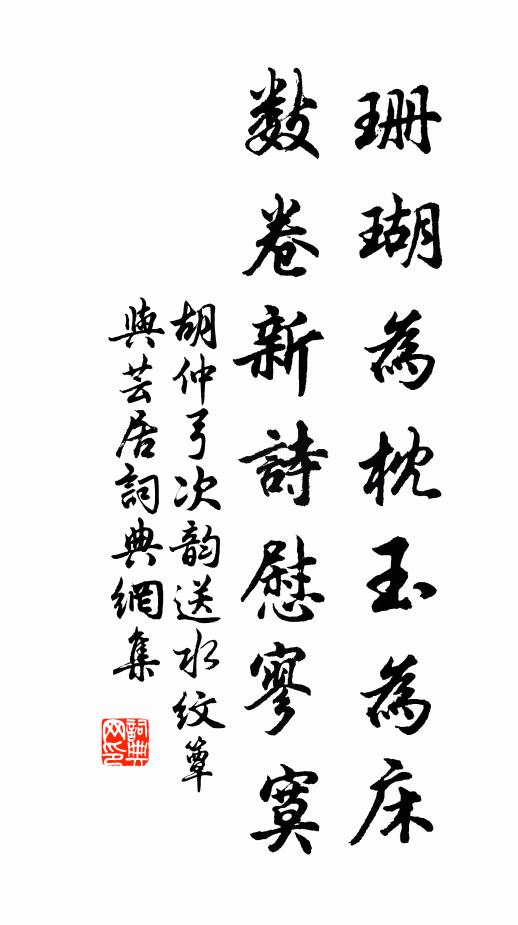 珊瑚為枕玉為床
数卷新詩慰寥寞
胡仲弓次韵送水紋簟
與芸居詞典網集
詞典
网印